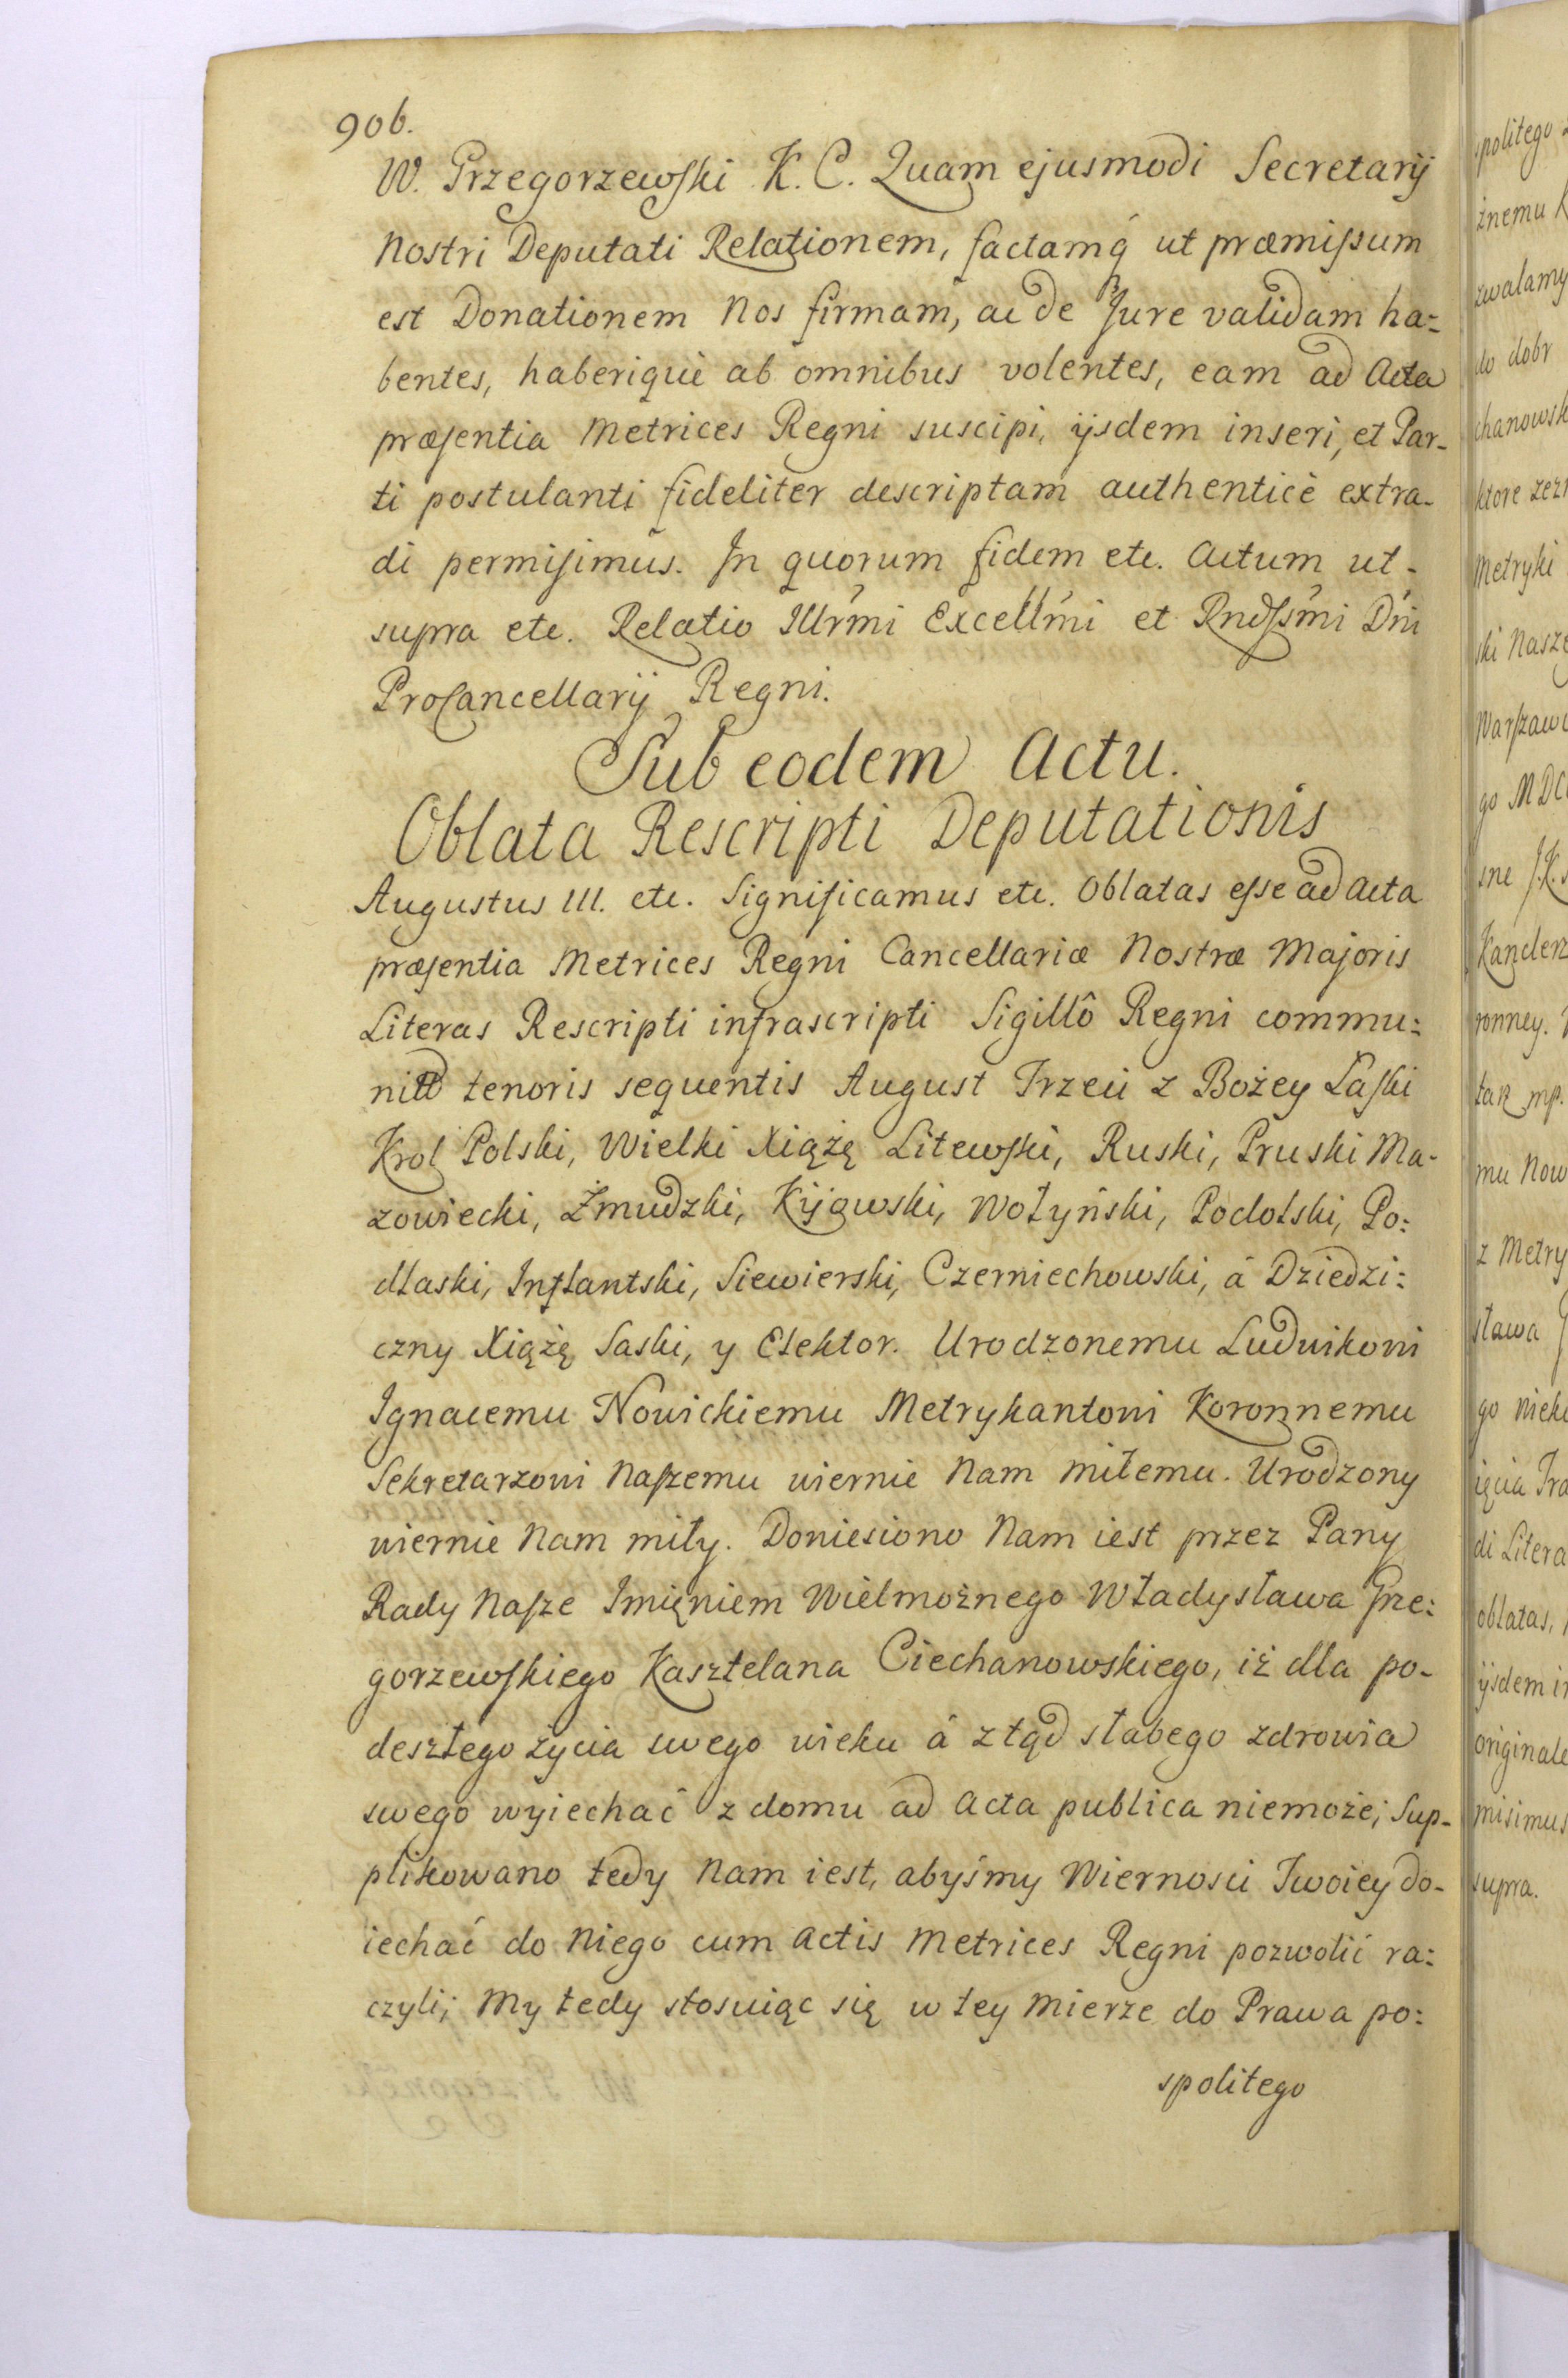 906.
W. Przegorzewski K. C. Quam ejusmodi Secretarij
Nostri Deputati Relationem, factamq́ ut præmissum
est Donationem Nos firmam, ac de Jure validam ha=
bentes, haberiquè ab omnibus volentes, eam ad Acta
præsentia Metrices Regni suscipi, ijsdem inseri, et Par-
ti postulanti fideliter descriptam authenticè extra-
di permisimus. In quorum fidem etc. Actum ut-
supra etc. Relatio Illrm̃i Excellm̃i et Rndssm̃i Dn̄i
ProCancellarij Regni.
Sub eodem Actu.
Oblata Rescripti Deputationis
Augustus III. etc. Significamus etc. Oblatas esse ad Acta
præsentia Metrices Regni Cancellariæ Nostræ Majoris
Literas Rescripti infrascripti Sigillô Regni commu=
nitas tenoris sequentis August Trzeci z Bożey Łaski
Krol Polski, Wielki Xiąże̢ Litewski, Ruski, Pruski Ma-
zowiecki, Żmudzki, Kijowski, Wołyński, Podolski, Po=
dlaski, Inflantski, Siewierski, Czerniechowski, á Dziedzi=
czny Xiążę Saski, y Elektor. Urodzonemu Ludwikowi
Ignacemu Nowickiemu Metrykantowi Koronnemu
Sekretarzowi Naszemu wiernie Nam miłemu. Urodzony
wiernie Nam miły. Doniesiono Nam iest przez Pany
Rady Nasze Imięniem Wielmożnego Władysława Prze=
gorzewskiego Kasztelana Ciechanowskiego, iż dla po-
deszłego życia swego wieku á ztąd słabego zdrowia
swego wyiechać z domu ad Acta publica niemoże; Sup-
plikowano tedy Nam iest, abyśmy Wiernosci Twoiey do-
iechać do Niego cum Actis Metrices Regni pozwolić ra=
czyli; My tedy stosuiąc się w tey mierze do Prawa po=
spolitego